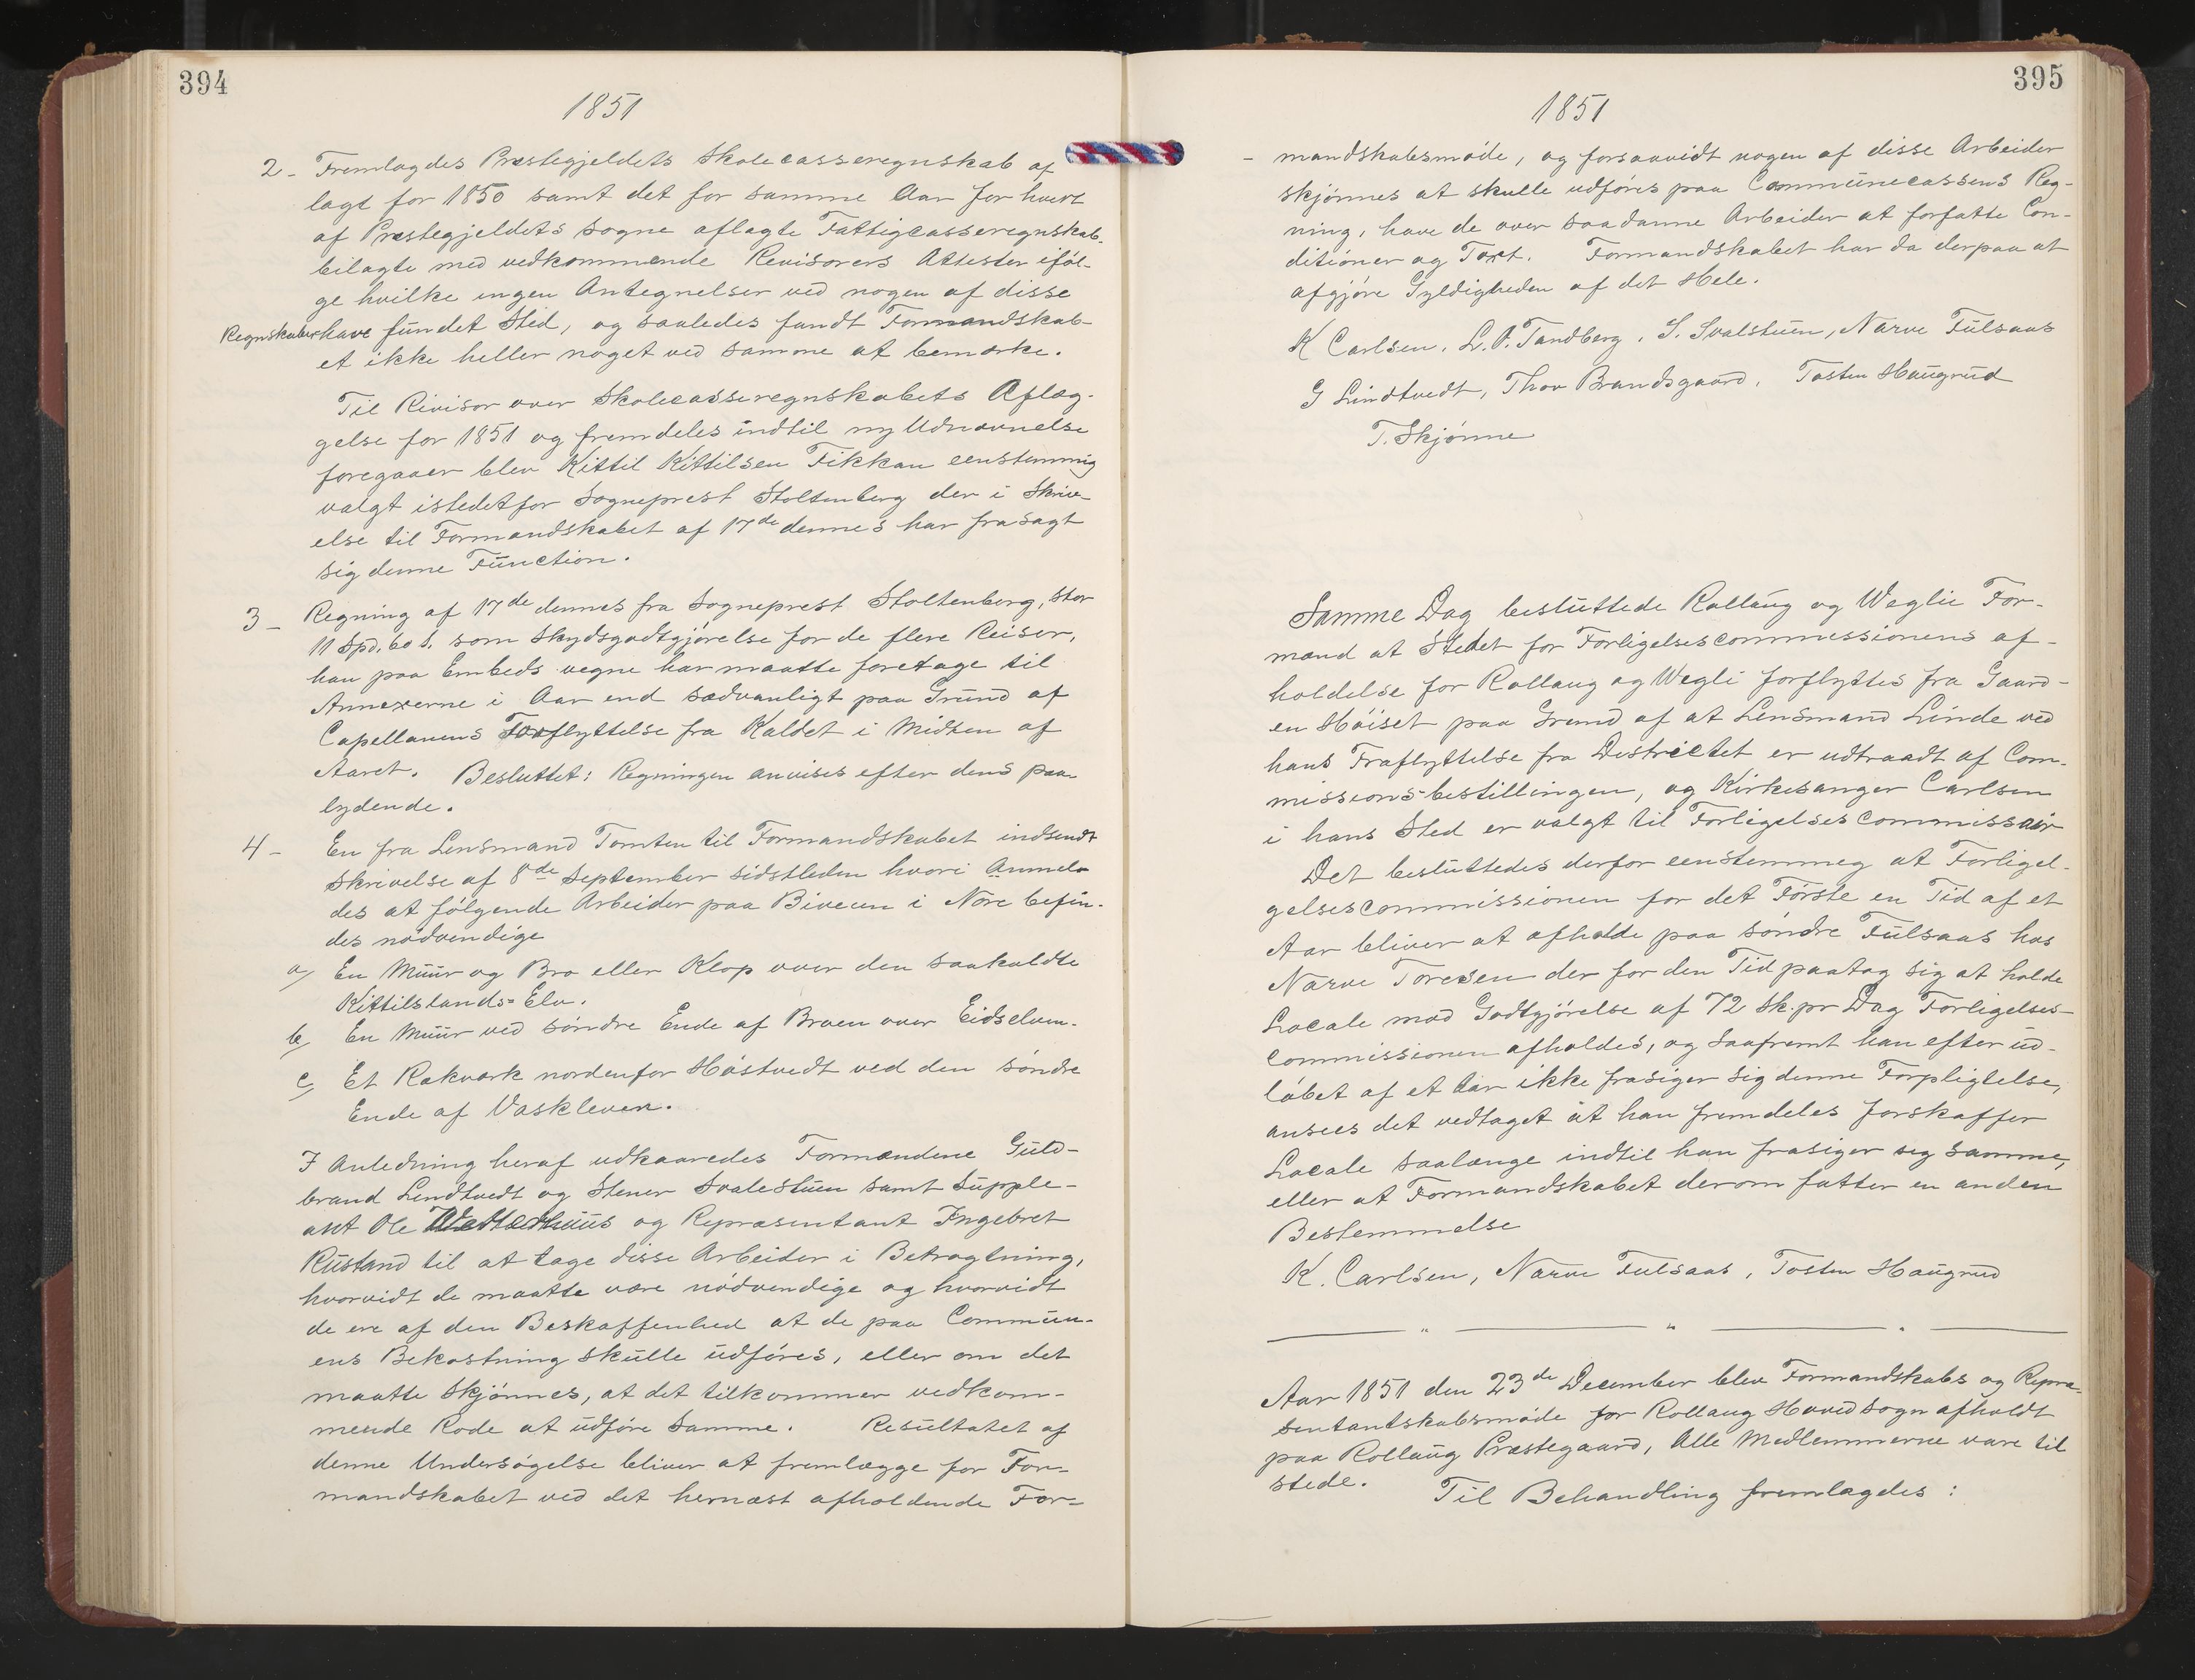 394
1851
2- Fremlagdes Præstegjeldets Skolecasseregnskab af
lagt for 1850 samt det for samme Aar for hvert
af Præstegjeldets Sogne aflagte Fattigcasseregnskab.
bilagte med vedkommende Revisorers Attester iföl-
ge hvilke ingen Antegnelser ved nogen af disse
Regnskaber have fundet Sted, og saaledes fandt Formandskab-
et ikke heller noget ved samme at bemærke.
Til Rivisor over Skolecasseregnskabets Aflæg-
gelse for 1851 og fremdeles indtil ny Udnævnelse
foregaaer blev Kittil Kittilsen Fikkan eenstemmig
valgt istedetfor Sogneprest Stoltenberg der i Skriv-
else til Formandskabet af 17de dennes har frasagt
sig denne Function.
3- Regning af 17de dennes fra Sogneprest Stoltenberg, stor
11 Spd. 60 s. som Skydsgodtgjörelse for de flere Reiser,
han paa Embeds vegne har maatte foretage til
Annexerne i Aar end sædvanligt paa Grund af
Capellanens Forflyttelse fra Kaldet i Midten af
Aaret. Besluttet: Regningen anvises efter dens paa-
lydende.
4- En fra Lensmand Tomten til Formandskabet indsendt
Skrivelse af 8de September sidstleden hvori Anmel-
des at fölgende Arbeider paa Biveien i Nore befin-
des nödvendige
a) En Muur og Bro eller Klop over den saakaldte
Kittilslands=Elv.
b) En Muur ved söndre Ende af Broen over Eidselven.
c) Et Rækværk nordenfor Höstvedt ved den söndre
Ende af Vaskleven.
I Anledning heraf udkaaredes Formændene Guld-
brand Lindtvedt og Stener Svalestuen samt Supple-
ant Ole Wetterhuus og Repræsentant Ingebret
Rustand til at tage disse Arbeider i Betragtning,
hvorvidt de maatte være nödvendige og hvorvidt
de ere af den Beskaffenhed at de paa Commun-
ens Bekostning skulle udföres, eller om det
maatte Skjönnes, at det tilkommer vedkom-
mende Rode at udföre Samme. Resultatet af
denne Undersögelse bliver at fremlægge for For-
mandskabet ved det hernæst afholdende For-
395
1851
- mandskabsmöde, og forsaavidt nogen af disse Arbeider
skjönnes at skulle udföres paa Communecassens Reg-
ning, have de over saadanne Arbeider at forfatte Con-
ditioner og Taxt. Formandskabet har da derpaa at
afgjöre Gyldigheden af det Hele.
K Carlsen. L. P. Tandberg. S. Svalstuen, Narve Fulsaas
G Lindtvedt, Thor Brandsgaard, Tosten Haugrud
T. Skjönne
Samme Dag besluttede Rollaug og Weglie For-
mænd at Stedet for Forligelsescommissionens af-
holdelse for Rollaug og Wegli forflyttes fra Gaard-
en Höiset paa Grund af at Lensmand Linde ved
hans Fraflyttelse fra Destrictet er udtraadt af Com-
missions-bestillingen, og Kirkesanger Carlsen
i hans Sted er valgt til Forligelses Commissair
Det besluttedes derfor eenstemmeg at Forligel-
gelsescommissionen for det Förste en Tid af et
Aar bliver at afholde paa söndre Fulsaas hos
Narve Toresen der for den Tid paatog sig at holde
Locale mod Godtgjörelse af 72 Sk. pr Dag Forligelses-
commissionen afholdes, og Saafremt han efter ud-
löbet af et Aar ikke frasiger sig denne Forpligtelse,
ansees det vedtaget at han fremdeles forskaffer
Locale saalænge indtil han frasiger sig samme,
eller at Formandskabet derom fatter en anden
Bestemmelse
K. Carlsen, Narve Fulsaas, Tosten Haugrud
Aar 1851 den 23de December blev Formandskabs og Repræ-
sentantskabsmöde for Rollaug Hovedsogn afholdt
paa Rollaug Præstegaard, Alle Medlemmerne vare til
stede. Til Behandling fremlagdes :